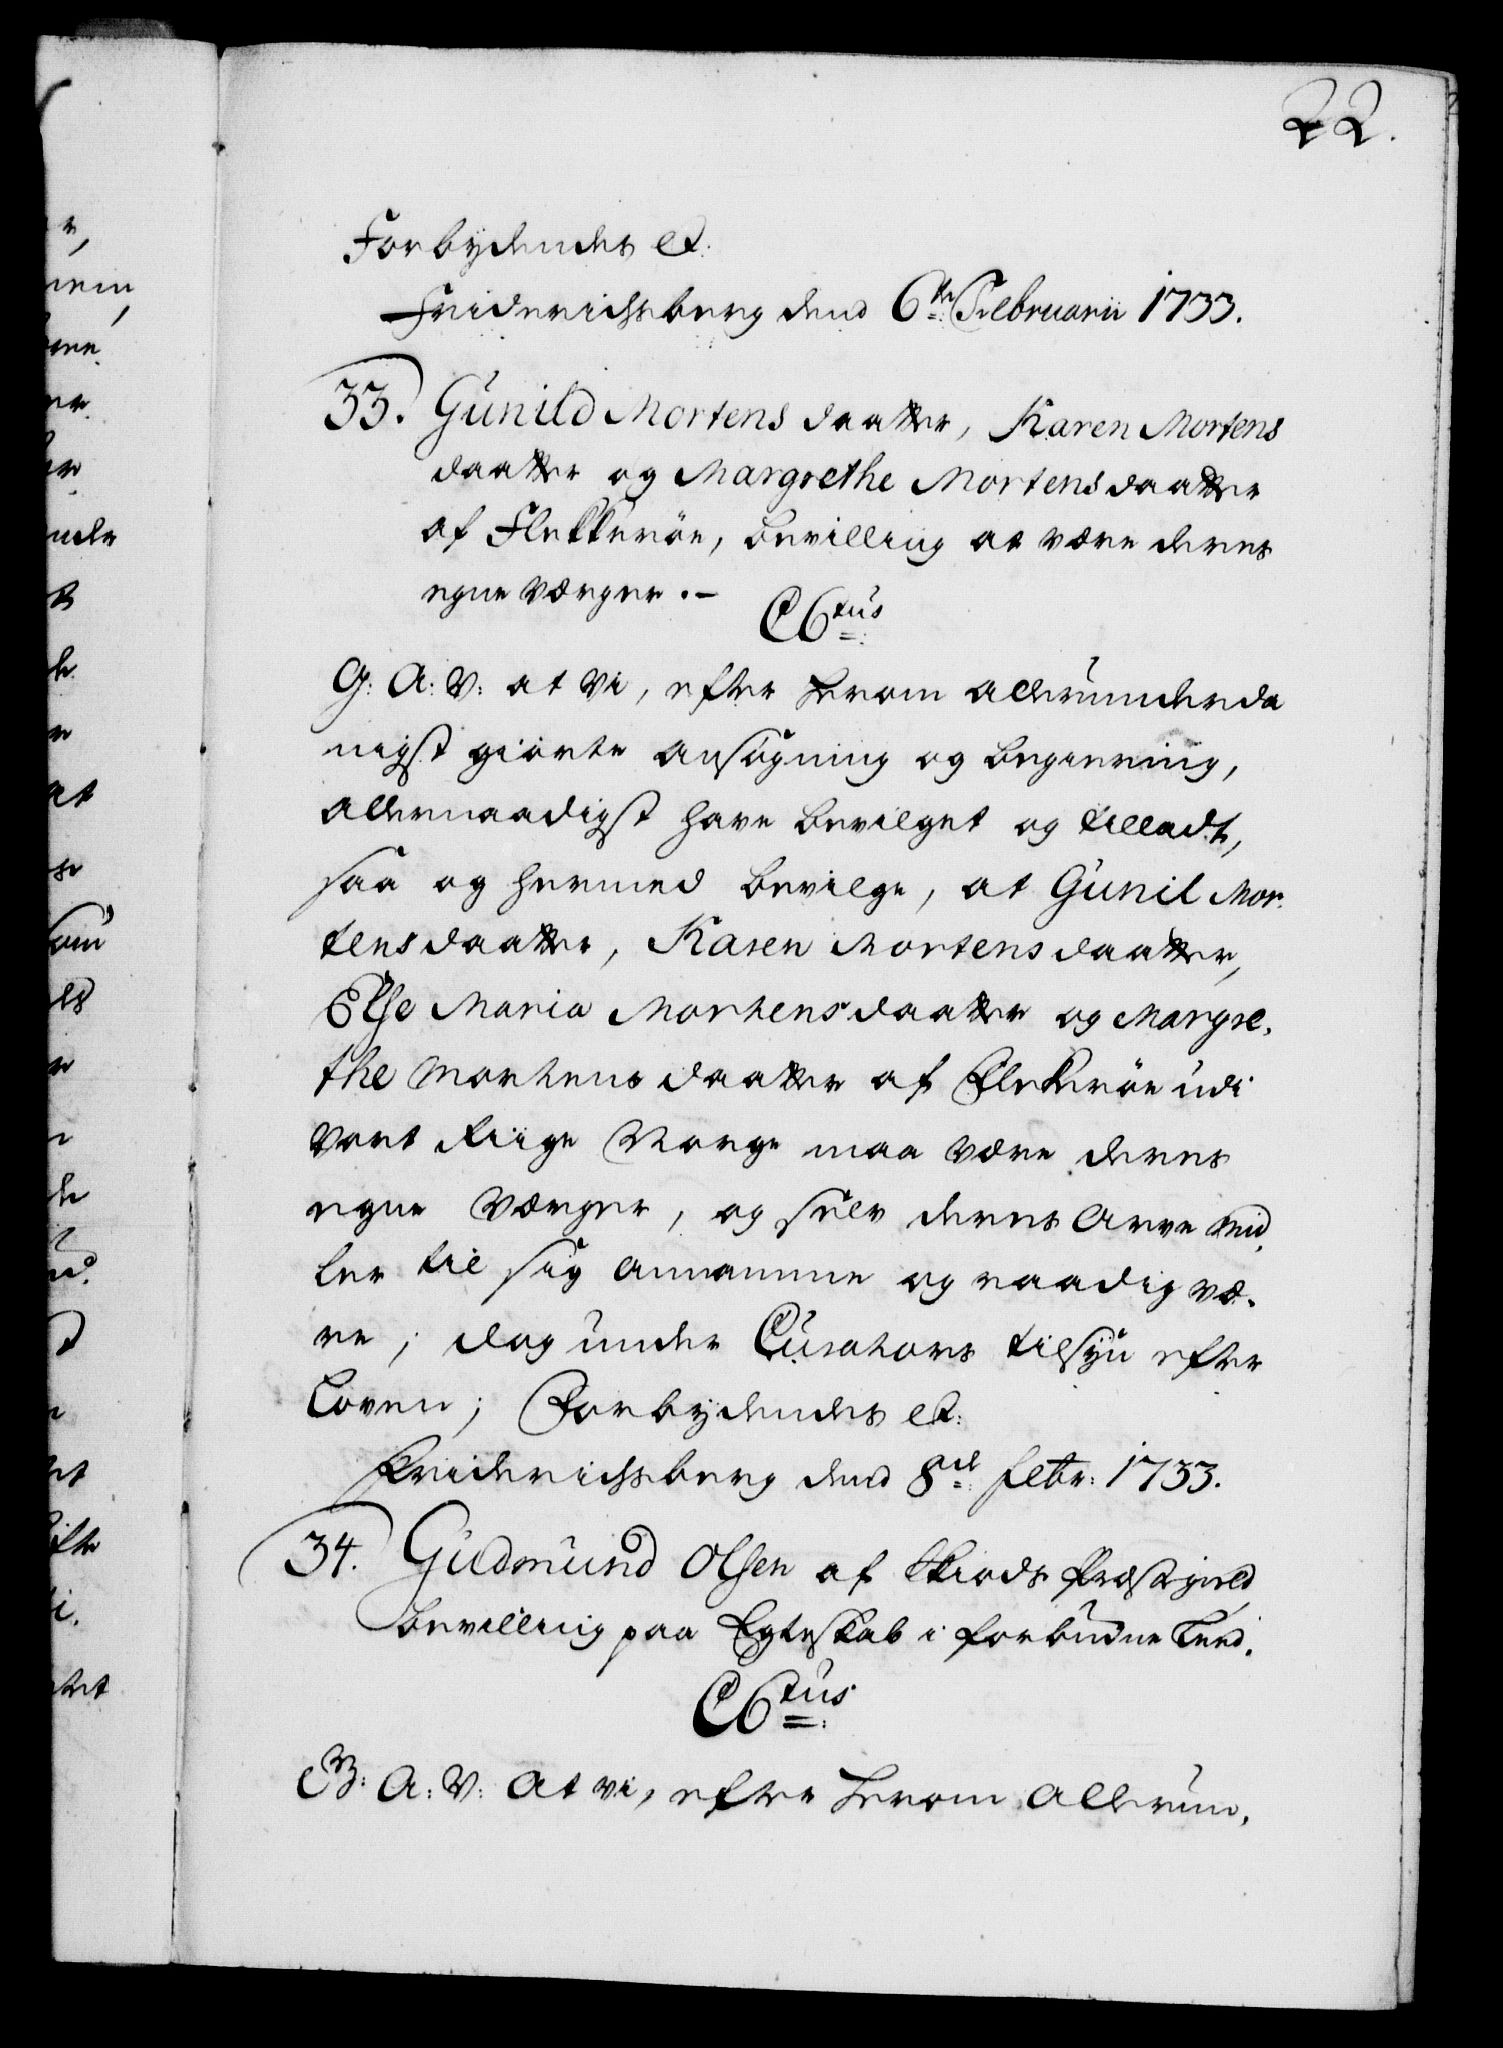 22.
Forbydendes etc:
Friderichsberg dend 6te Februarii 1733.
33. Gunild Mortens daatter, Karen Mortens
daatter og Margrethe Mortensdaatter
af Flekkerøe, bevilling at være deres
egne Værger.-
C6tus
G: A: V: at Vi, efter herom allerunderda
nigst giorte ansøgning og begiering,
allernaadigst have bevilget og tilladt,
saa og hermed bevilge, at Gunil Mor-
tensdaatter, Karen Mortensdaatter,
Else Maria Mortensdaatter og Margre-
the Mortensdaatter af Flekkerøe udi
Vort Riige Norge maa være deres
egne Værger, og selv deres Arve Mid-
ler til sig annamme og raadig væ-
re; dog under Curators tilsyn efter
Loven; Forbydendes etc:
Friderichsberg dend 8de Febr: 1733.
34. Gudmund Olsen af Præstegield
bevilling paa Egteskab i forbudne Leed.
C6tus
G: A: V: at vi, efter herom allerun-